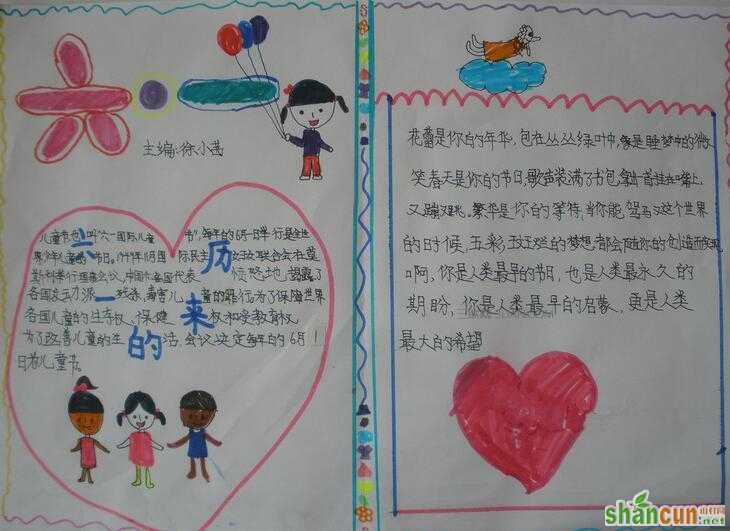 六·一
主编:徐小茜
儿童节也叫"六一国际儿童节",每年的6月1日举行是全世
界少年儿童的节日。1949年11月国际民主妇女联合会在莫
斯科举行理事会议,中国和各国代表愤怒地揭露了
各国反动派残杀、毒害儿童的罪行。为了保障世界
各国儿童的生存权、保健权和受教育权
为了改善儿童的生活,会议决定每年的6月1
日为儿童节
六一的
历来
花蕾是你的年华,包在丛丛绿叶中,像是睡梦中的微
笑春天是你的节日,歌声装满了书包,拿一首挂在嘴上,
又蹦又跳。繁华是你的等待,当你能驾驭这个世界
的时候,五彩斑斓的梦想,都会随你的创造而实现
啊,你是人类最早的节日,也是人类最永久的
期盼,你是人类最早的启蒙,更是人类
最大的希望
shancun
山村网
.net